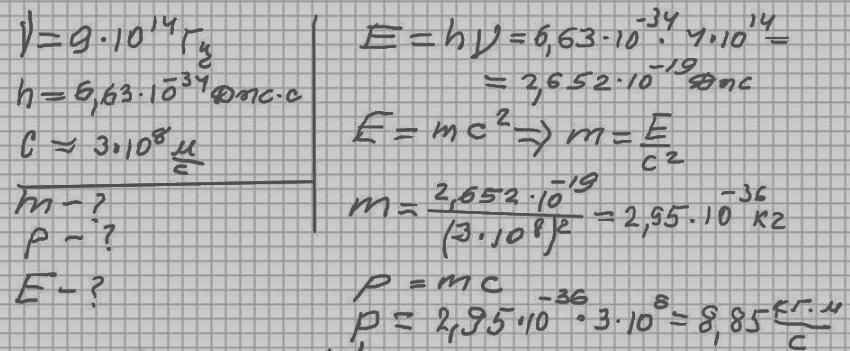 ν = 9·10¹⁴ Гц
h = 6,63·10⁻³⁴ Дж·с
c ≈ 3·10⁸ м/с
m – ?
p – ?
E – ?
E = hν = 6,63·10⁻³⁴ · 4·10¹⁴ =
= 2,652·10⁻¹⁹ Дж
E = mc² ⇒ m = E/c²
m = 2,652·10⁻¹⁹/(3·10⁸)² = 2,95·10⁻³⁶ кг
p = mc
p = 2,95·10⁻³⁶ · 3·10⁸ = 8,85 кг·м/с